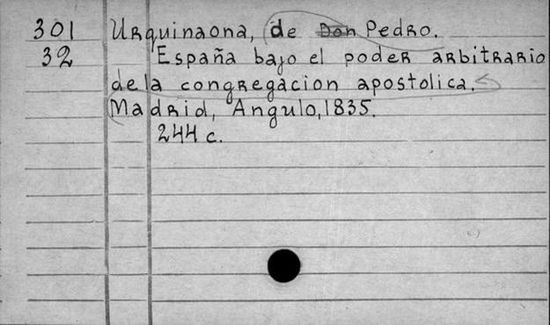 301 Urquinaona, de Don Pedro.
32 España bajo el poder arbitrario
de la congregacion apostolica.
Madrid, Angulo, 1835.
244 c.